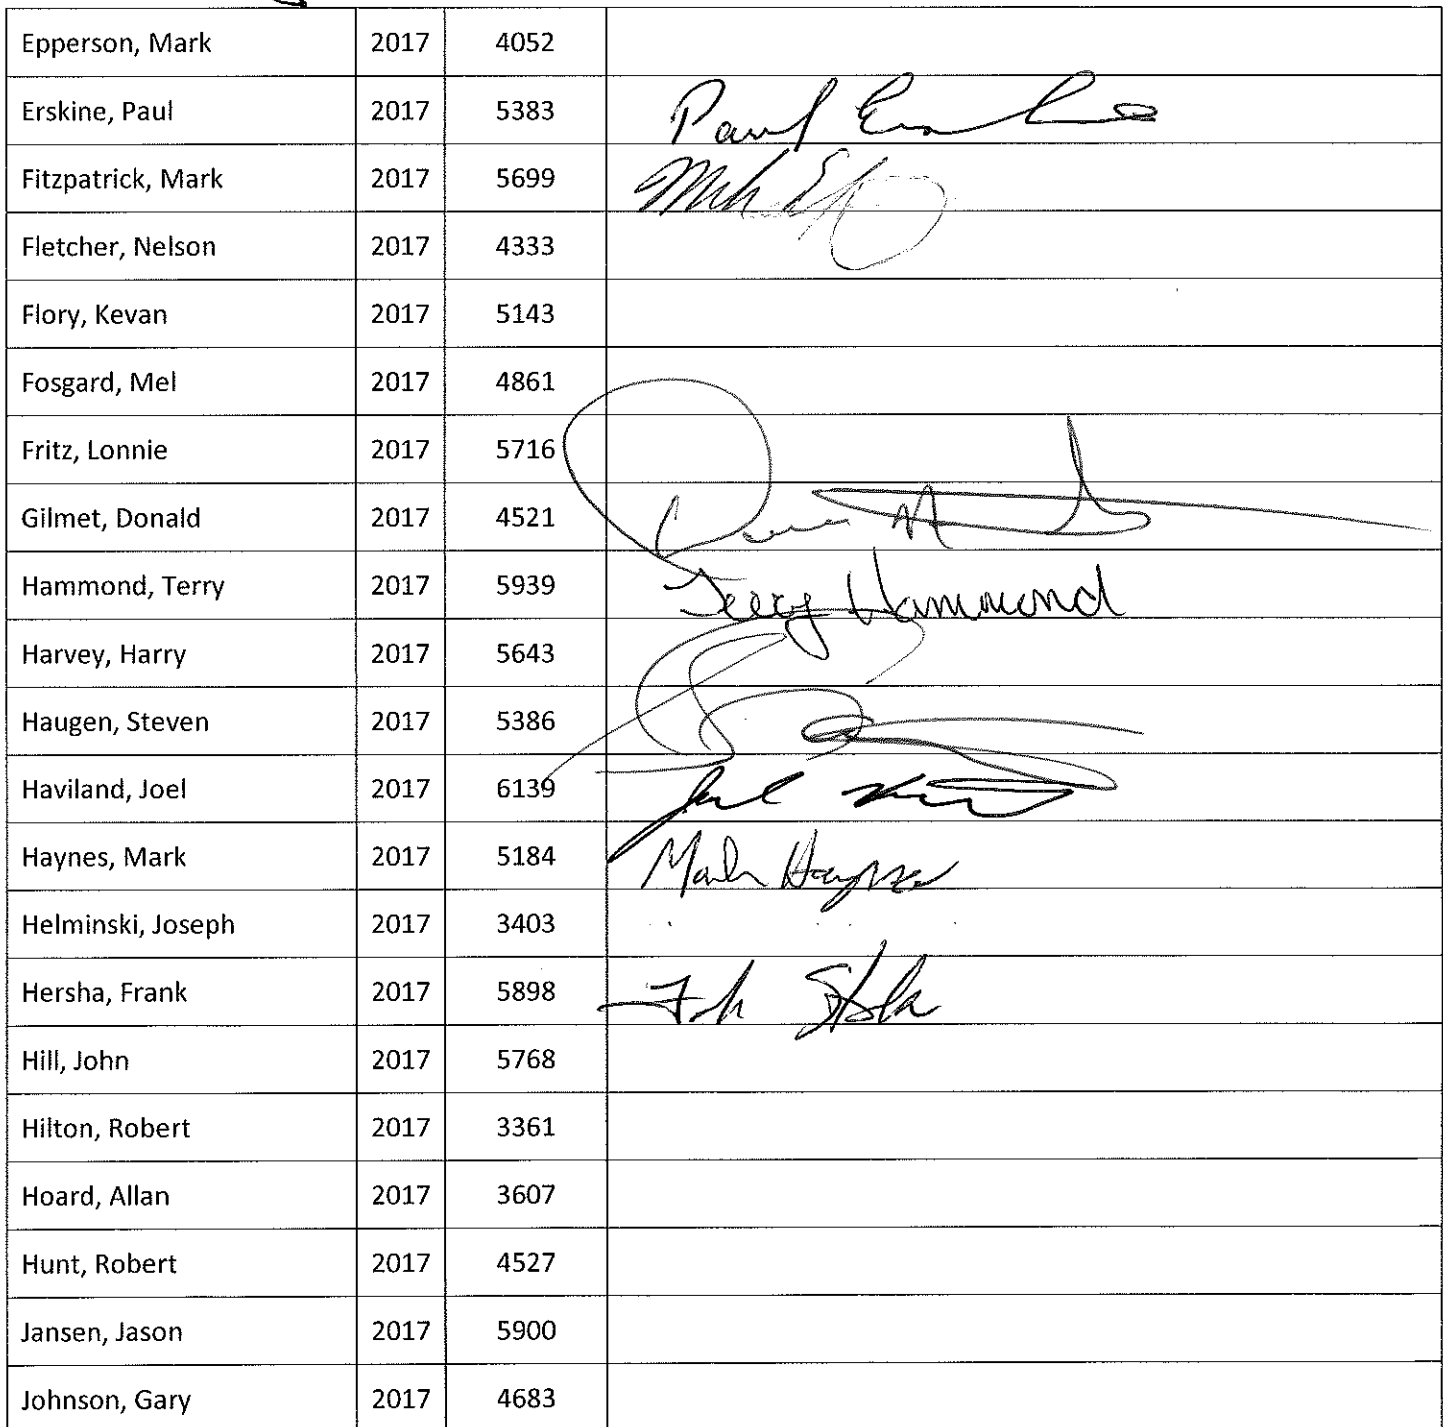 Epperson, Mark 2017 4052
Erskine, Paul 2017 5383 Paul Erskine
Fitzpatrick, Mark 2017 5699
Fletcher, Nelson 2017 4333
Flory, Kevan 2017 5143
Fosgard, Mel 2017 4861
Fritz, Lonnie 2017 5716
Gilmet, Donald 2017 4521
Hammond, Terry 2017 5939 Terry Hammond
Harvey, Harry 2017 5643
Haugen, Steven 2017 5386
Haviland, Joel 2017 6139
Haynes, Mark 2017 5184 Mark Haynes
Helminski, Joseph 2017 3403
Hersha, Frank 2017 5898
Hill, John 2017 5768
Hilton, Robert 2017 3361
Hoard, Allan 2017 3607
Hunt, Robert 2017 4527
Jansen, Jason 2017 5900
Johnson, Gary 2017 4683